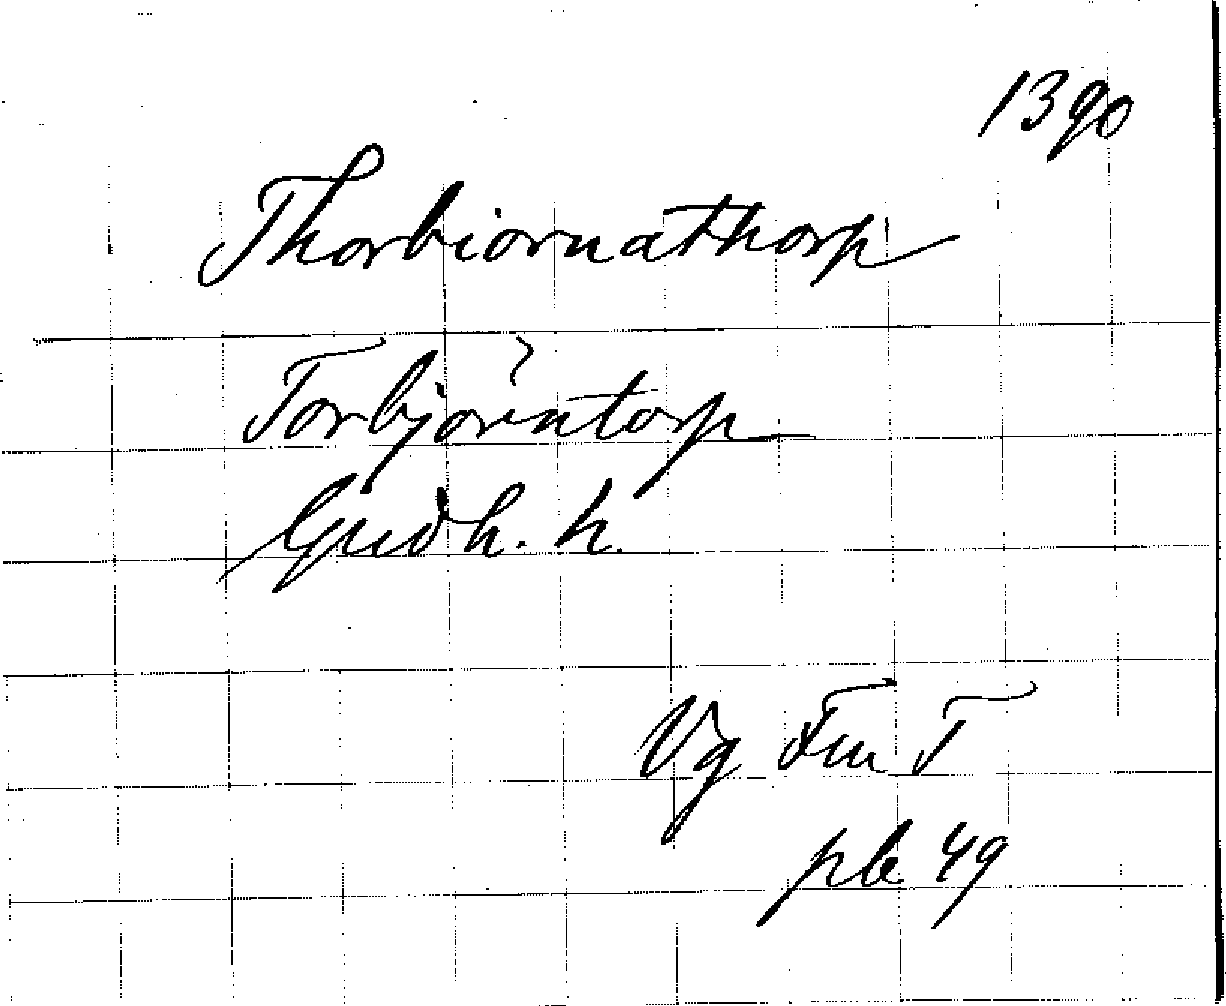 1390
Thorbiornathorp
Torbjörntorp
Gudh. h.
Vg Fm T
pb 49